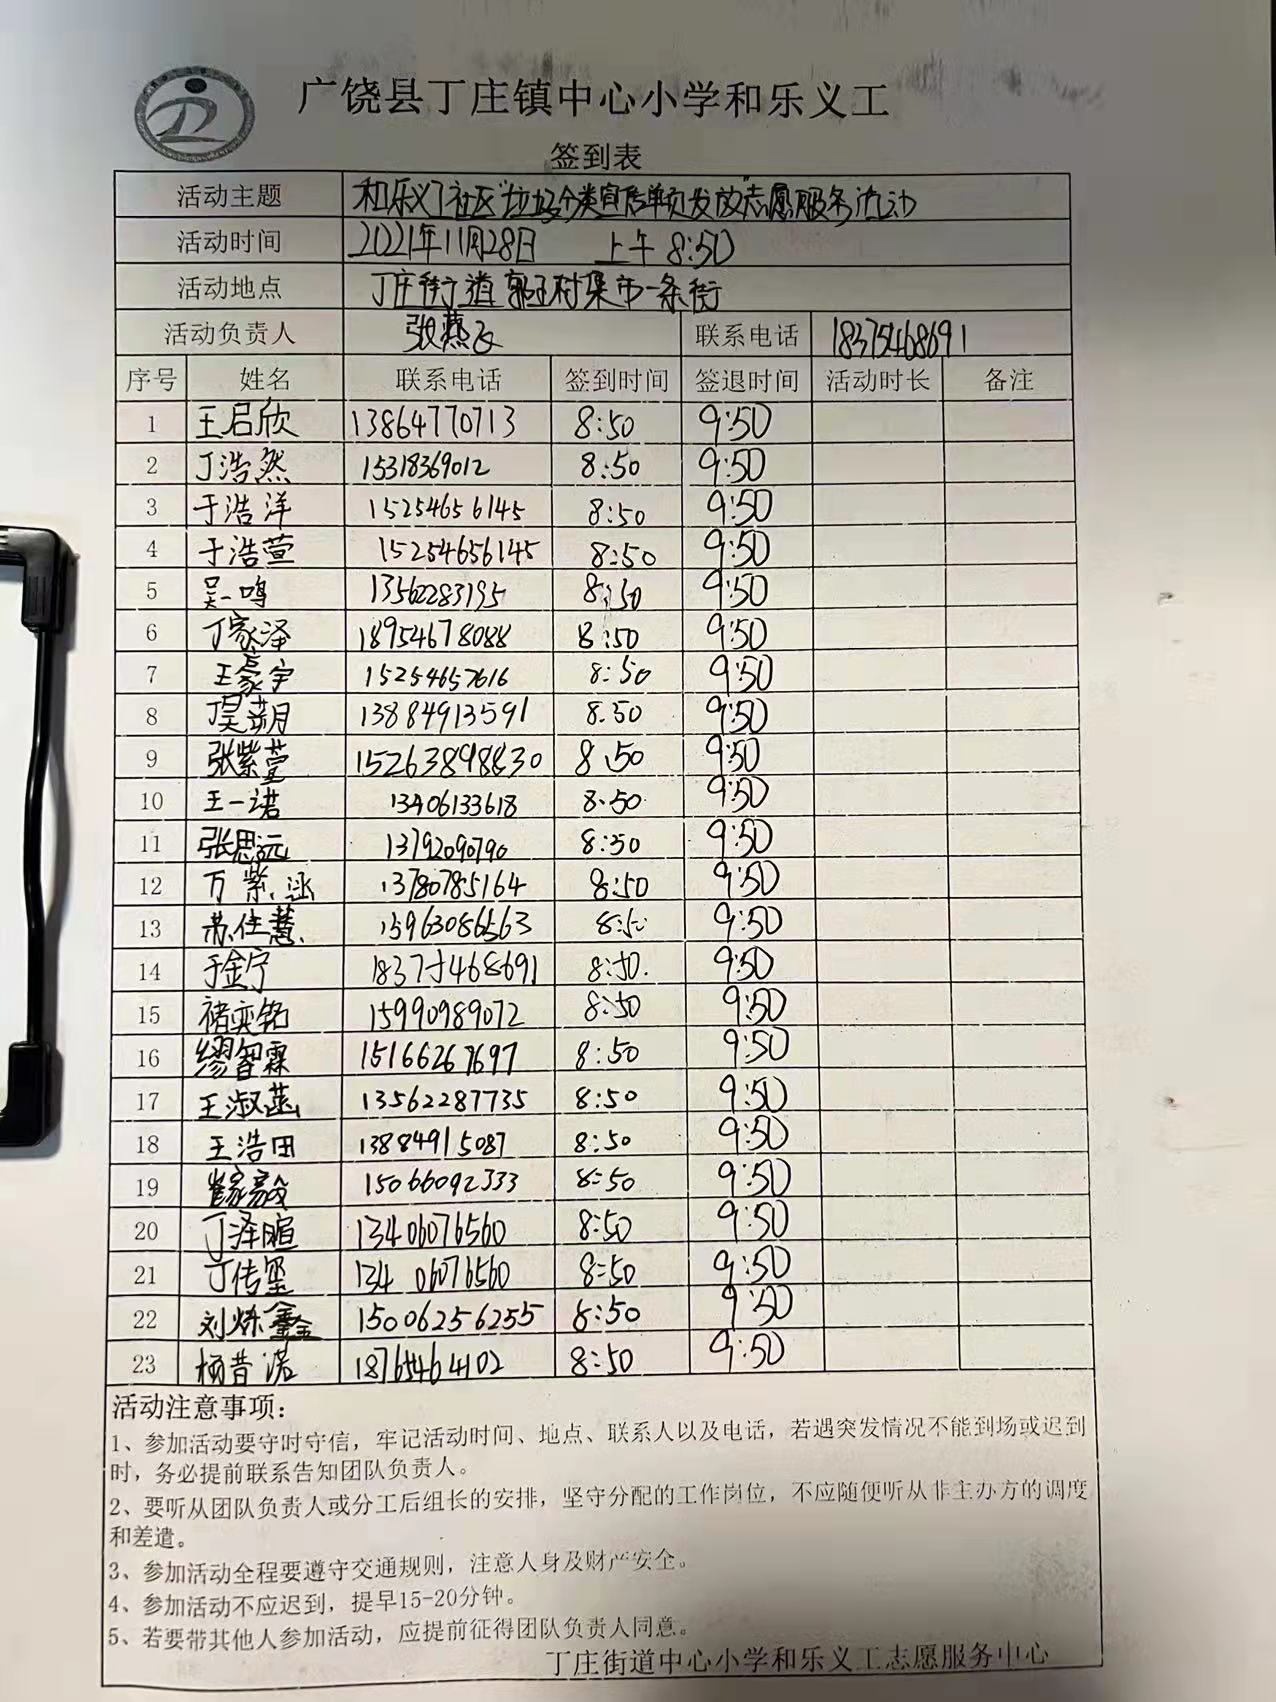 广饶县丁庄镇中心小学和乐义工
签到表
活动主题 和乐义工社区"垃圾分类宣传单页发放"志愿服务活动
活动时间 2021年11月28日 上午 8:50
活动地点 丁庄街道 郭王村集市一条街
活动负责人 张燕飞 联系电话 18375468691
序号 姓名 联系电话 签到时间 签退时间 活动时长 备注
1 王启欣 13864770713 8:50 9:50
2 丁浩然 15318369012 8:50 9:50
3 于浩洋 15254656145 8:50 9:50
4 于浩萱 15254656145 8:50 9:50
5 吴一鸣 13562283195 8:50 9:50
6 丁家泽 18954678088 8:50 9:50
7 王豪宇 15254657616 8:50 9:50
8 13884913591 8:50 9:50
9 张紫萱 15263898830 8:50 9:50
10 王一诺 13406133618 8:50 9:50
11 张思远 13792090790 8:50 9:50
12 万紫涵 13780785164 8:50 9:50
13 苏佳慧 15963086563 8:50 9:50
14 于金宁 18375468691 8:50 9:50
15 褚奕铭 15990989072 8:50 9:50
16 缪智霖 15166267697 8:50 9:50
17 王淑菡 13562287735 8:50 9:50
18 王浩田 13884915087 8:50 9:50
19 15066092333 8:50 9:50
20 丁泽暄 13406076560 8:50 9:50
21 丁传玺 13406076560 8:50 9:50
22 刘烁鑫 15006256255 8:50 9:50
23 杨昔诺 18765464102 8:50 9:50
活动注意事项：
1、参加活动要守时守信，牢记活动时间、地点、联系人以及电话，若遇突发情况不能到场或迟到
时，务必提前联系告知团队负责人。
2、要听从团队负责人或分工后组长的安排，坚守分配的工作岗位，不应随便听从非主办方的调度
和差遣。
3、参加活动全程要遵守交通规则，注意人身及财产安全。
4、参加活动不应迟到，提早15-20分钟。
5、若要带其他人参加活动，应提前征得团队负责人同意。
丁庄街道中心小学和乐义工志愿服务中心